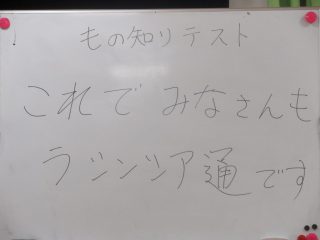 もの知りテスト
これでみなさんも
ラシンシア通です